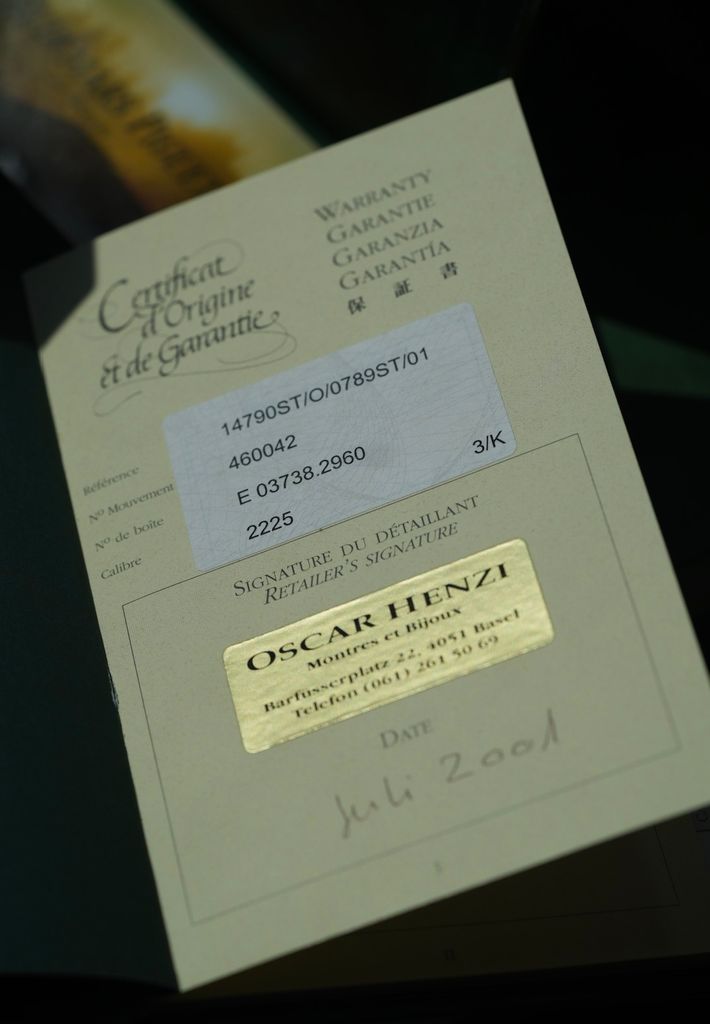 Certificat
d'Origine
et de Garantie
WARRANTY
GARANTIE
GARANZIA
GARANTÍA
保 証 書
Référence
Nº Mouvement
Nº de boîte
Calibre
14790ST/O/0789ST/01
460042
E 03738.2960
2225
3/K
SIGNATURE DU DÉTAILLANT
RETAILER'S SIGNATURE
OSCAR HENZI
Montres et Bijoux
Barfusserplatz 22, 4051 Basel
Telefon (061) 261 50 69
DATE
Juli 2001